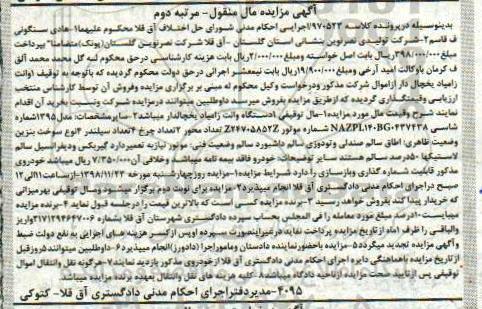 آگهی مزایده مال منقول- مرتبه دوم
بدینوسیله درپرونده کلاسه ۹۷۰۵۲۳/اجرایی احکام مدنی شورای حل اختلاف آق قلا محکوم علیهما۱-هادی سنگونی
ف قاسم۲-شرکت تولیدی نصرنوین بنشانی استان گلستان -آق قلا شرکت نصرنوین گلستان(پونک)متضامنا" بپرداخت
مبلغ۳۹۸/۰۰۰/۰۰۰ریال بابت اصل خواسته ومبلغ ریال بابت هزینه کارشناسی درحق محکوم لیه گل محمد محمد آلق
ف کرمان باوکالت امید آرخی ومبلغ۱۹/۹۰۰/۰۰۰ریال بابت نیمعشر اجرائی درحق دولت محکوم گردیده که باتوجه به توقیف (وانت
زامیاد یخچال دار ازاموال شرکت مذکور ودرخواست وکیل محکوم له مبنی بر برگزاری مزایده وفروش آن توسط کارشناس منتخب
ارزیابی وقیمتگذاری گردیده که ازطریق مزایده بفروش میرسد وداوطلبین میتوانند درمزایده شرکت ونسبت بخرید آن اقدام
نمایند شرح وقیمت مال مورد مزایده۱-مال توقیفی ۱دستگاه وانت زامیاد یخچالدار میباشد۲-سایرمشخصات: مدل۱۳۹۵شماره
شاسی NAZPL۱۴۰BG۰۴۳۷۴۳۸ شماره موتور Z۲۴۷۰۵۸۵۲Z تعداد محور ۲تعداد چرخ ۴تعداد سیلندر ۴نوع سوخت بنزین
وضعیت ظاهری: اطاق سالم صندلی وتودوزی سالم داشبورد سالم وضعیت فنی: موتور نیازبه تعمیردارد گیربکس ودیفرانسیل سالم
لاستیکها ۵۰درصد سالم هستند سایر توضیحات: خودرو فاقد بیمه نامه میباشد وخلافی آن۷/۳۵۰/۰۰۰ ریال میباشد خودروی
مذکور قابلیت شماره گذاری وبازسازی را دارد شرایط مزایده۱-مزایده روزچهارشنبه مورخه ۱۳۹۸/۱۱/۲۳-ازساعت۱۱الی۱۲
صبح دراجرای احکام مدنی دادگستری آق قلا انجام میپذیرد۲-مزایده برای نوبت دوم برگزار میشود ومال توقیفی بهرمیزانی
که خریدار پیدا کند بفروش خواهد رسید ۳-برنده مزایده کسی است که بالاترین قیمت را درجلسه قبول نماید ۴-برنده مزایده
میبایست۱۰درصد مبلغ مورد معامله را فی المجلس بحساب سپرده دادگستری شهرستان آق قلا بشماره واریز
والباقی را ظرف ۱ماه ازتاریخ مزایده پرداخت نماید درغیراینصورت سپرده اوپس ازکسر هزینه های اجرایی به نفع دولت ضبط
وآگهی مزایده تجدید میگردد۵-مزایده باحضورنماینده دادستان ومامور اجرا (دادورز) انجام میپذیرد۶-داوطلبین میتوانند ۵روزقبل
ازتاریخ مزایده باهماهنگی دایره اجرای احکام مدنی دادگستری آق قلا ازخودروی مذکور بازدید نمایند۷-هرگونه نقل وانتقال اموال
توقیفی پس ازتایید صحت مزایده ازناحیه دادگاه میباشد۸-کلیه هزینه های نقل وانتقال بعهده برنده مزایده میباشد
۴۰۹۵-مدیردفتراجرای احکام مدنی دادگستری آق قلا- کتوکی